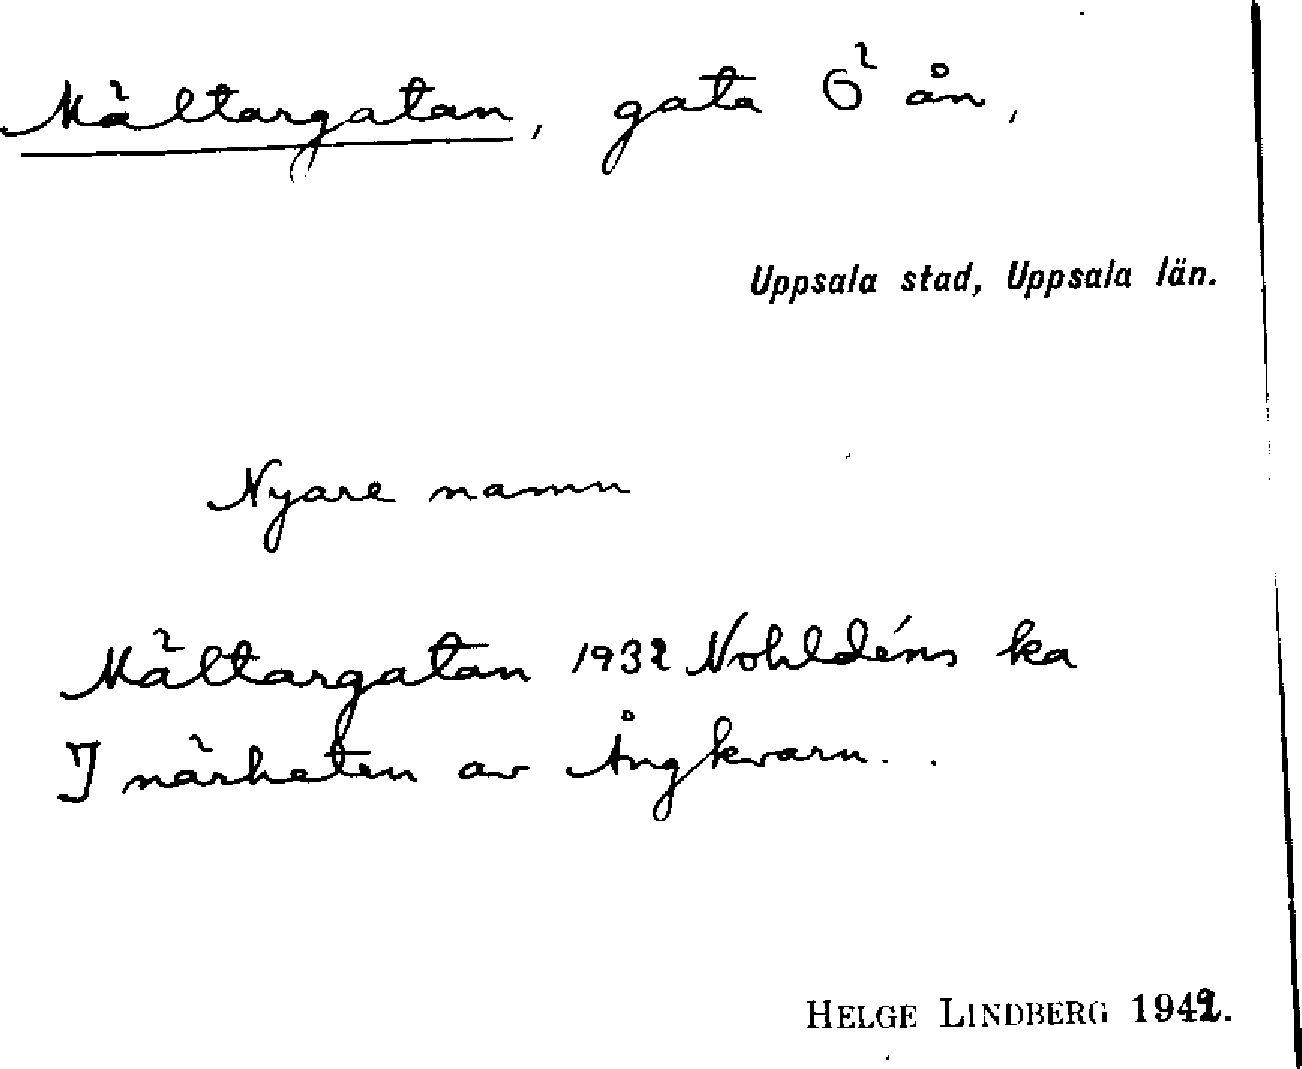 Mältargatan, gata Ö ån,
Uppsala stad, Uppsala län.
Nyare namn
Mältargatan 1932 Nohldéns ka
I närheten av Ångkvarn..
HELGE LINDBERG 1942.